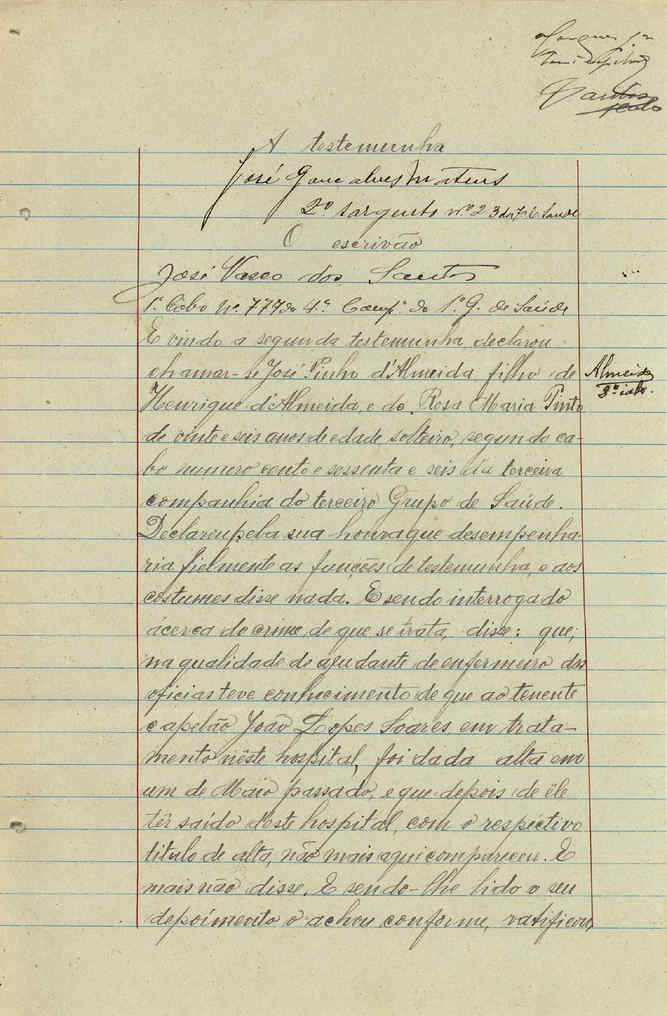 A testemunha
José Gonçalves Mateus
2º sargento nº 23 da 7ª C. Saude
O escrivão
José Vasco dos Santos
1º Cabo nº 777 da 4ª Compª do 1º G. de Saúde
E vindo a segunda testemunha declarou
chamar-se José Pinho d'Almeida filho de
Almeida
2º cabo
Henrique d'Almeida e de Rosa Maria Pinto
de vinte e seis anos de edade solteiro, segundo ca-
bo numero cento e sessenta e seis da terceira
companhia do terceiro Grupo de Saúde.
Declarou pela sua honra que desempenha-
ria fielmente as funções de testemunha, e aos
costumes disse nada. E sendo interrogado
ácerca do crime de que se trata, disse: que,
na qualidade de ajudante de enfermeiro dos
oficias teve conhecimento de que ao tenente
capelão João Lopes Soares em trata-
mento nêste hospital, foi dada alta em
um de Maio passado, e que depois de êle
têr saído dêste hospital, com o respectivo
titulo de alta, não mais aqui compareceu. E
mais não disse. E sendo-lhe lido o seu
depoimento o achou conforme, ratificou,